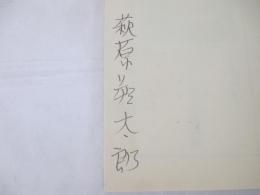 萩原英太郎